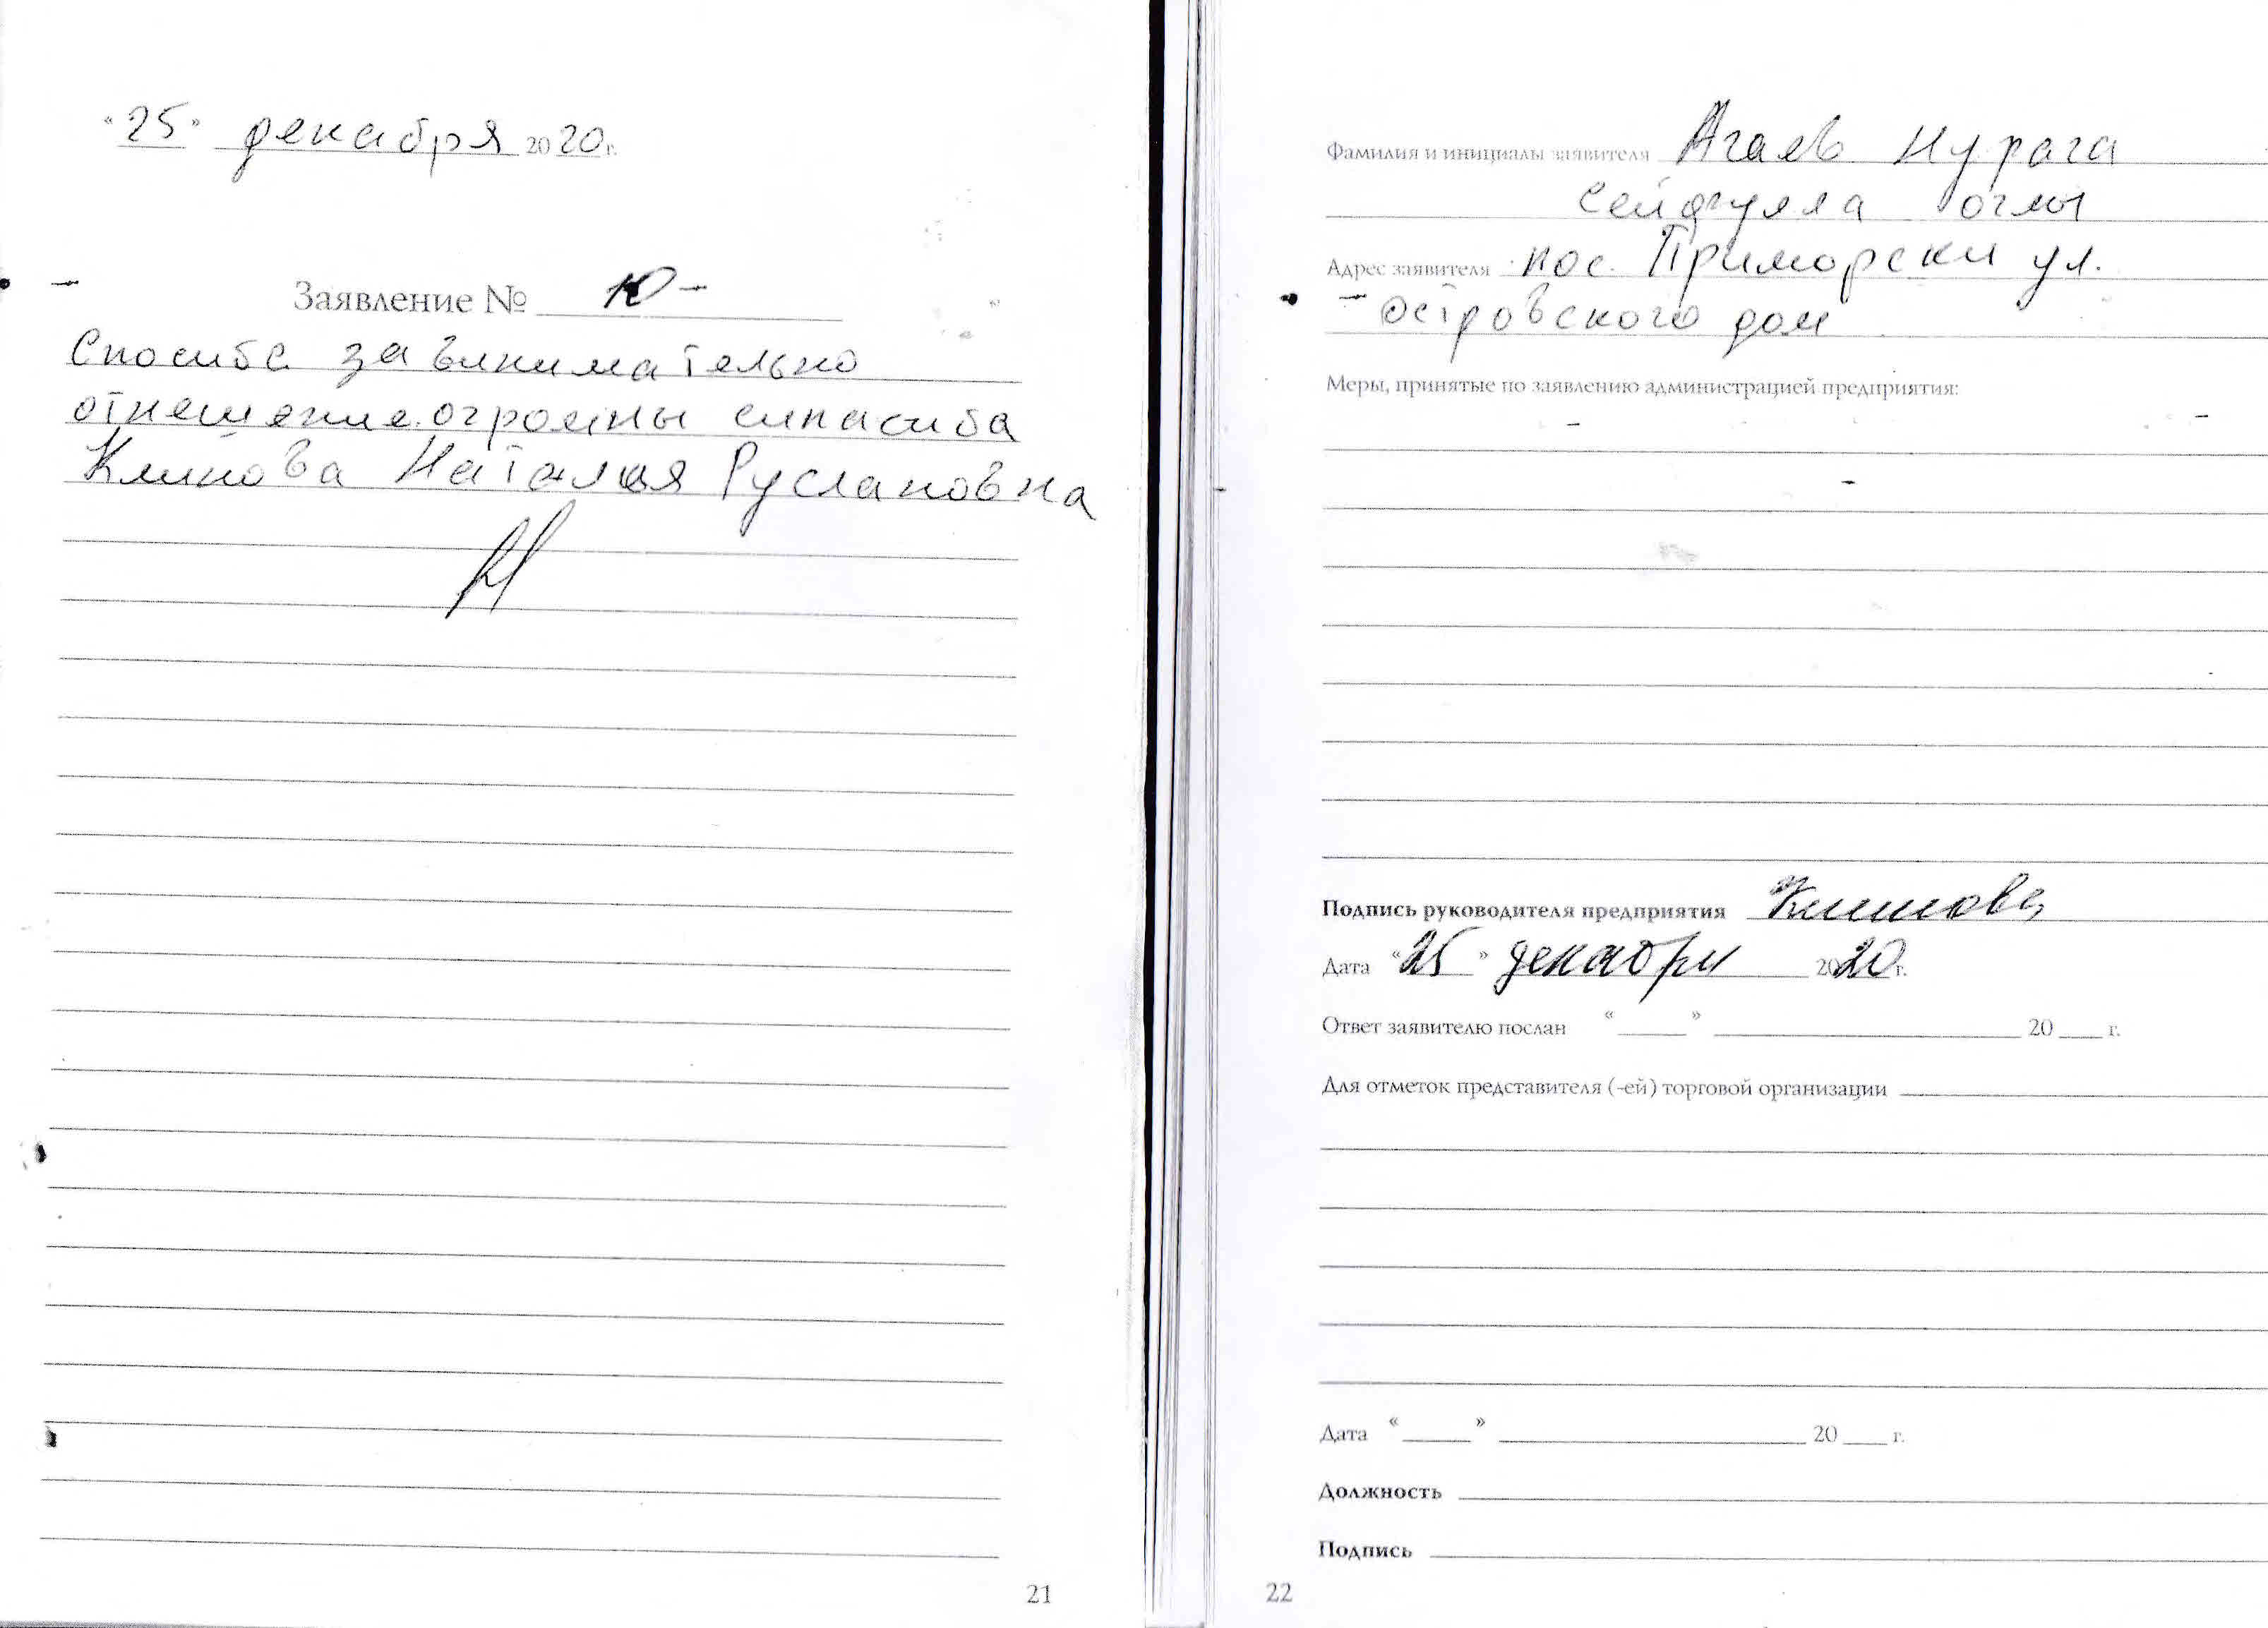 "25" декабря 2020г.
Заявление № 10 -
Спосиба за внинимательно
отнешение. огромны сипасиба
Климова Наталия Руслановна
21
Фамилия и инициалы заявителя Агаев Нурага
Сейфулла оглы
Адрес заявителя пос. Приморски ул.
Островского дом
Меры, принятые по заявлению администрацией предприятия:
Подпись руководителя предприятия Климова
Дата "25" декабря 2020 г.
Ответ заявителю послан «___» ___ 20___ г.
Для отметок представителя (-ей) торговой организации
Дата «___» ___ 20___ г.
Должность
Подпись
22